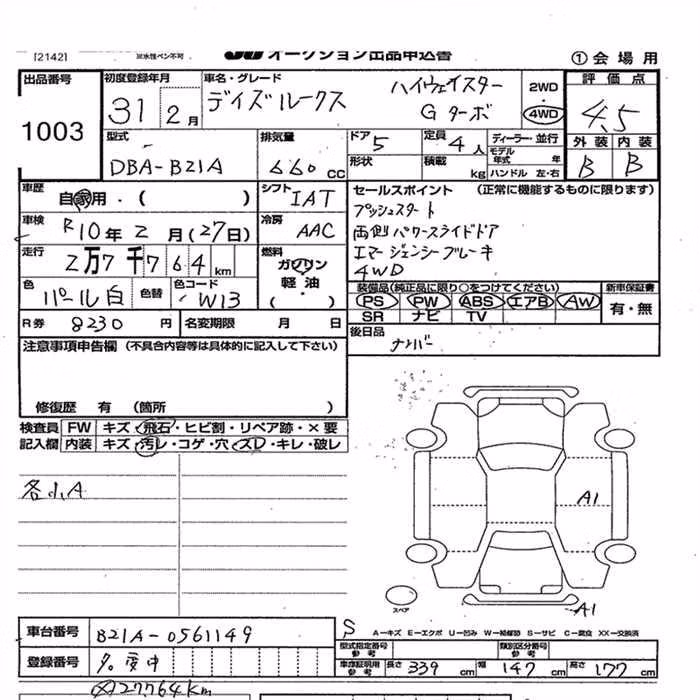 [2142] ※水性ペン不可 オークション出品申込書 ①会場用
出品番号 初度登録年月 車名・グレード 評価点
1003 31 2月 デイズルークス ハイウェイスター Gターボ 2WD 4WD 4.5
型式 排気量 ドア 定員 ディーラー・並行 外装 内装
DBA-B21A 660cc 5 4人 モデル年式 年 B B
形状 積載 kg ハンドル 左・右
車歴 自家用・( ) シフト IAT セールスポイント (正常に機能するものに限ります)
車検 R10年2月(27日) 冷房 AAC プッシュスタート
両側パワースライドドア
走行 2万7千764km 燃料 ガソリン 軽油 ( ・ ) エマージェンシーブレーキ
4WD
色 パール白 色替 色コード W13 装備品(純正品に限り○をつけてください) 新車保証書
PS PW ABS エアB AW 有・無
SR ナビ TV
R券 8230円 名変期限 月 日 後日品
ナンバー
注意事項申告欄 (不具合内容等は具体的に記入して下さい)
修復歴 有 (箇所 )
検査員記入欄 FW キズ・飛石・ヒビ割・リペア跡・×要
内装 キズ・汚レ・コゲ・穴・スレ・キレ・破レ
各小A
A1
A1
スペア
車台番号 B21A-0561149 S A−キズ E−エクボ U−凹み W−補修跡 S−サビ C−腐食 XX−交換済
型式指定番号 参考 類別区分番号 参考
登録番号 名変中 車庫証明用 参考 長さ 339cm 幅 147cm 高さ 177cm
27,764km